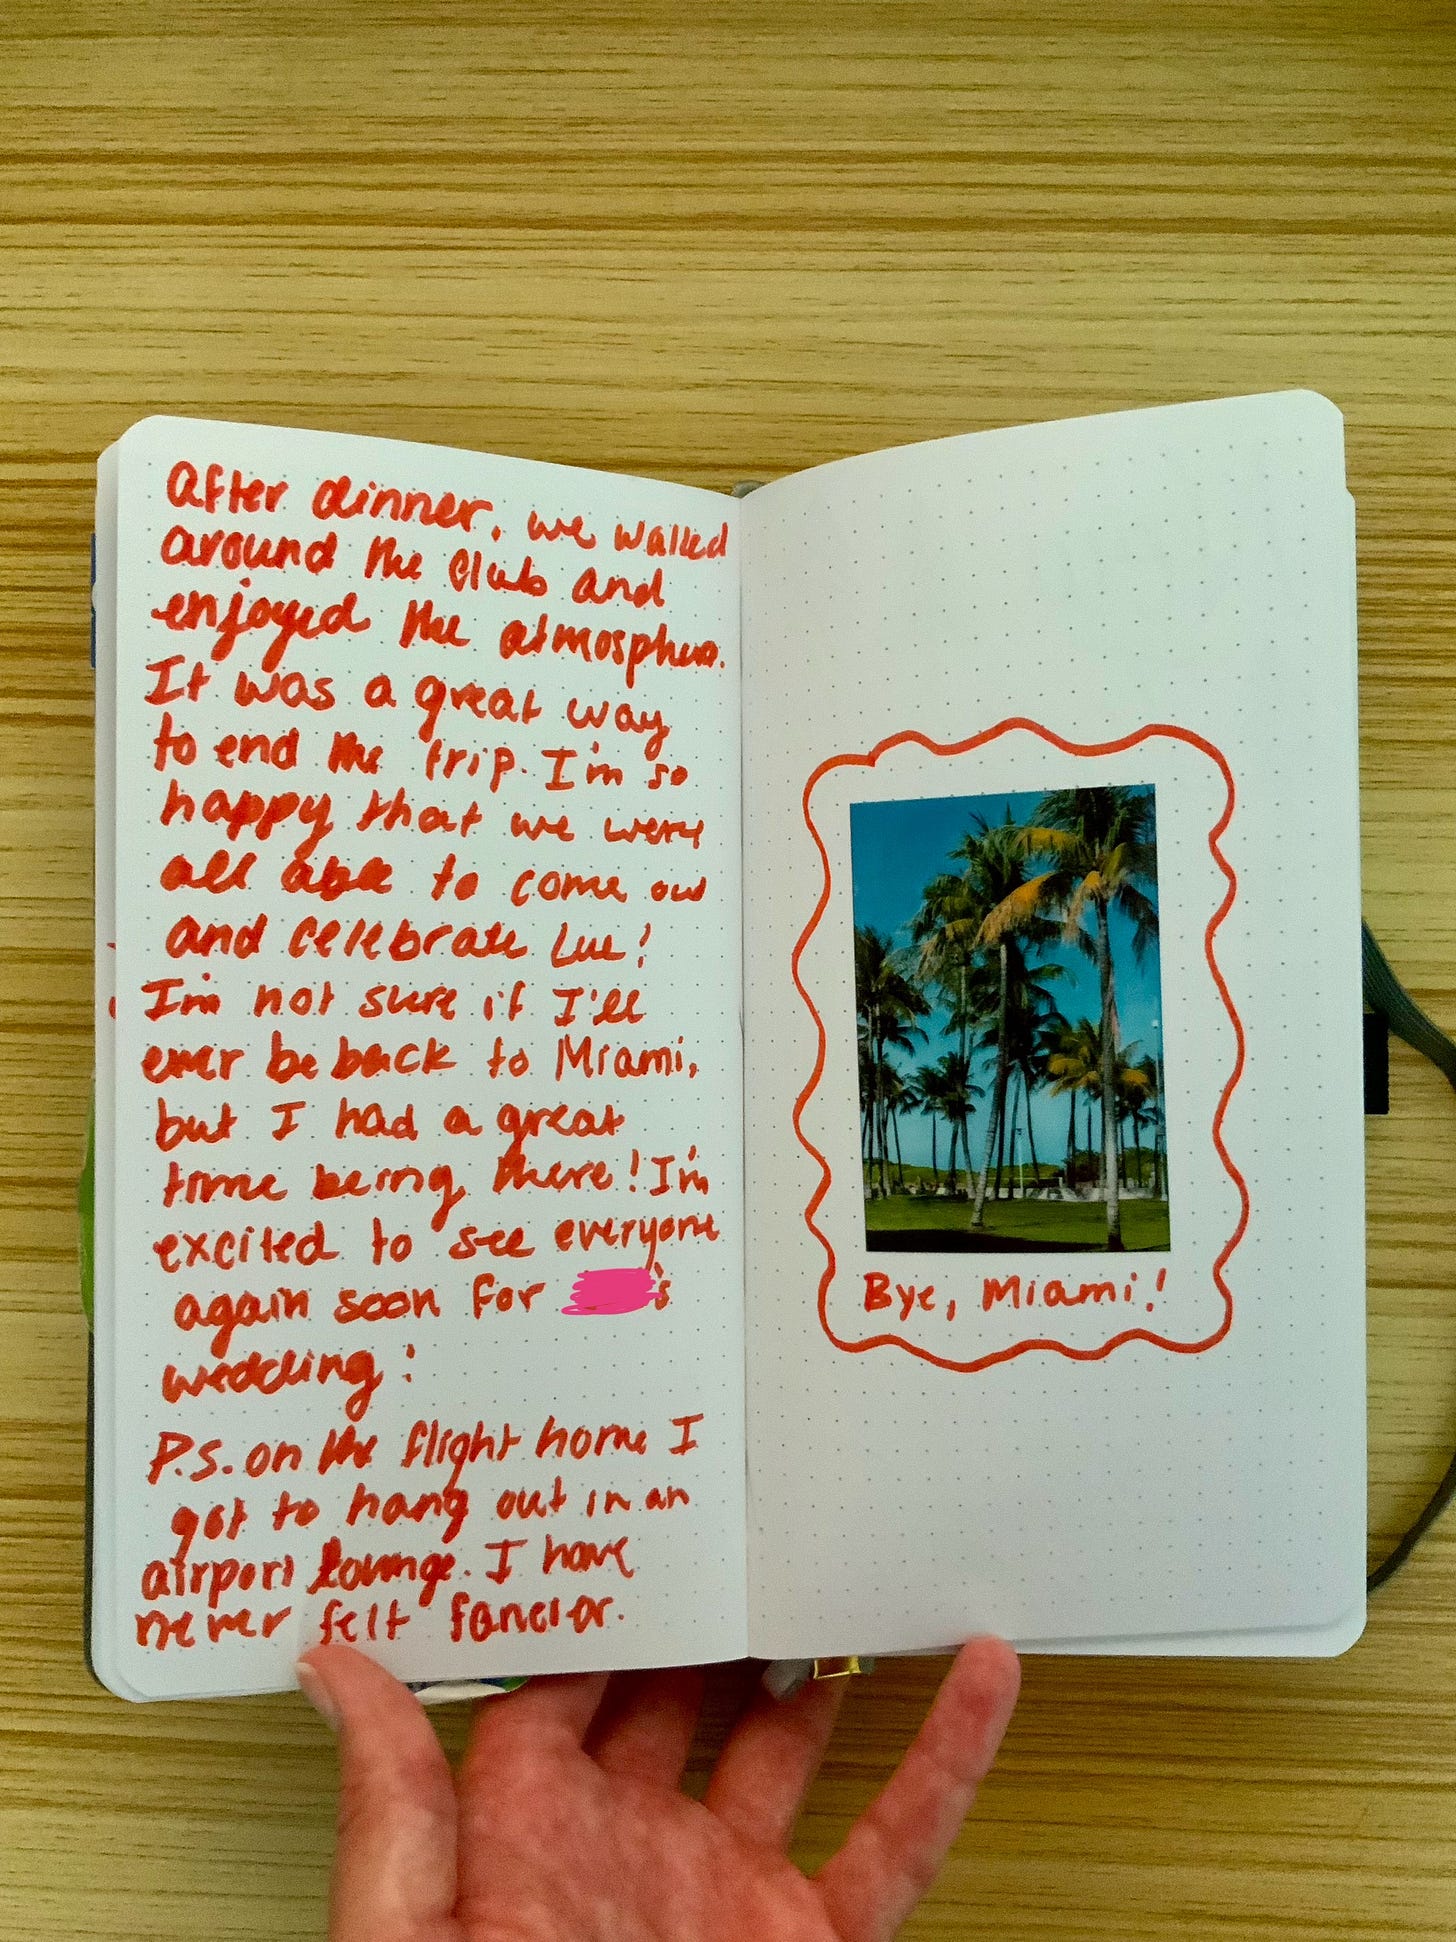 After dinner, we walked
around the club and
enjoyed the atmosphere.
It was a great way
to end the trip. I'm so
happy that we were
all able to come out
and celebrate Lue!
I'm not sure if I'll
ever be back to Miami,
but I had a great
time being there! I'm
excited to see everyone
again soon for 's
wedding!
P.S. on the flight home I
got to hang out in an
airport lounge. I have
never felt fancier.
Bye, Miami!